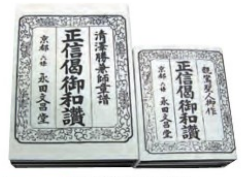 清澤勝英師章譜
正信偈御和讃
京都 六條 永田文昌堂
親鸞聖人御作
正信偈御和讃
京都 六條 永田文昌堂